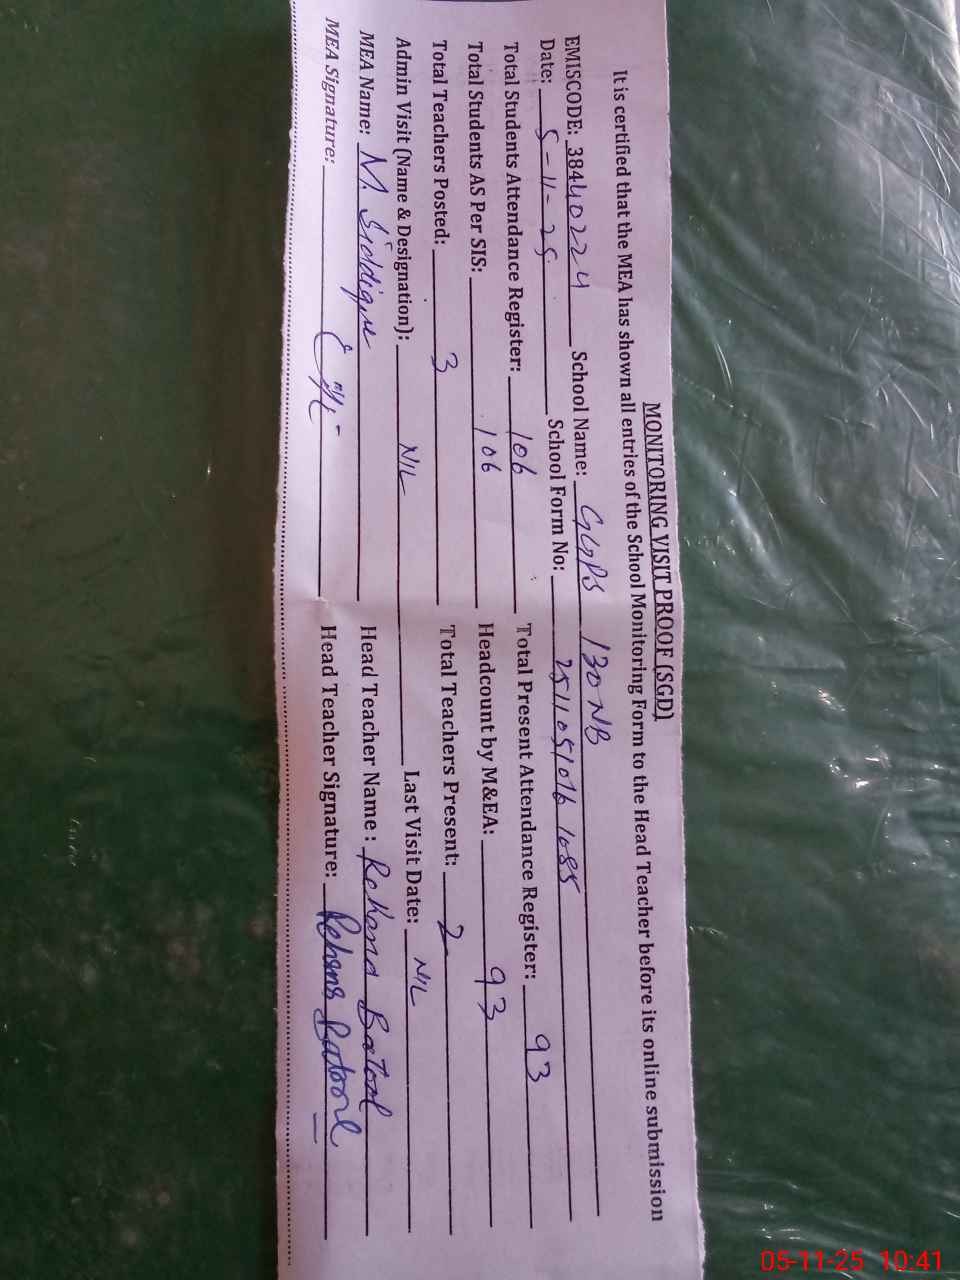 MONITORING VISIT PROOF (SGD)
It is certified that the MEA has shown all entries of the School Monitoring Form to the Head Teacher before its online submission
EMISCODE: 38440224 School Name: GGPS 130 NB
Date: 5-11-25 School Form No:
Total Students Attendance Register: 106 Total Present Attendance Register: 93
Total Students AS Per SIS: 106 Headcount by M&EA: 93
Total Teachers Posted: 3 Total Teachers Present: 2
Admin Visit (Name & Designation): NIL Last Visit Date: NIL
MEA Name: M. Siddique Head Teacher Name : Rehana Batool
MEA Signature: Head Teacher Signature: Rehana Batool
05-11-25 10:41